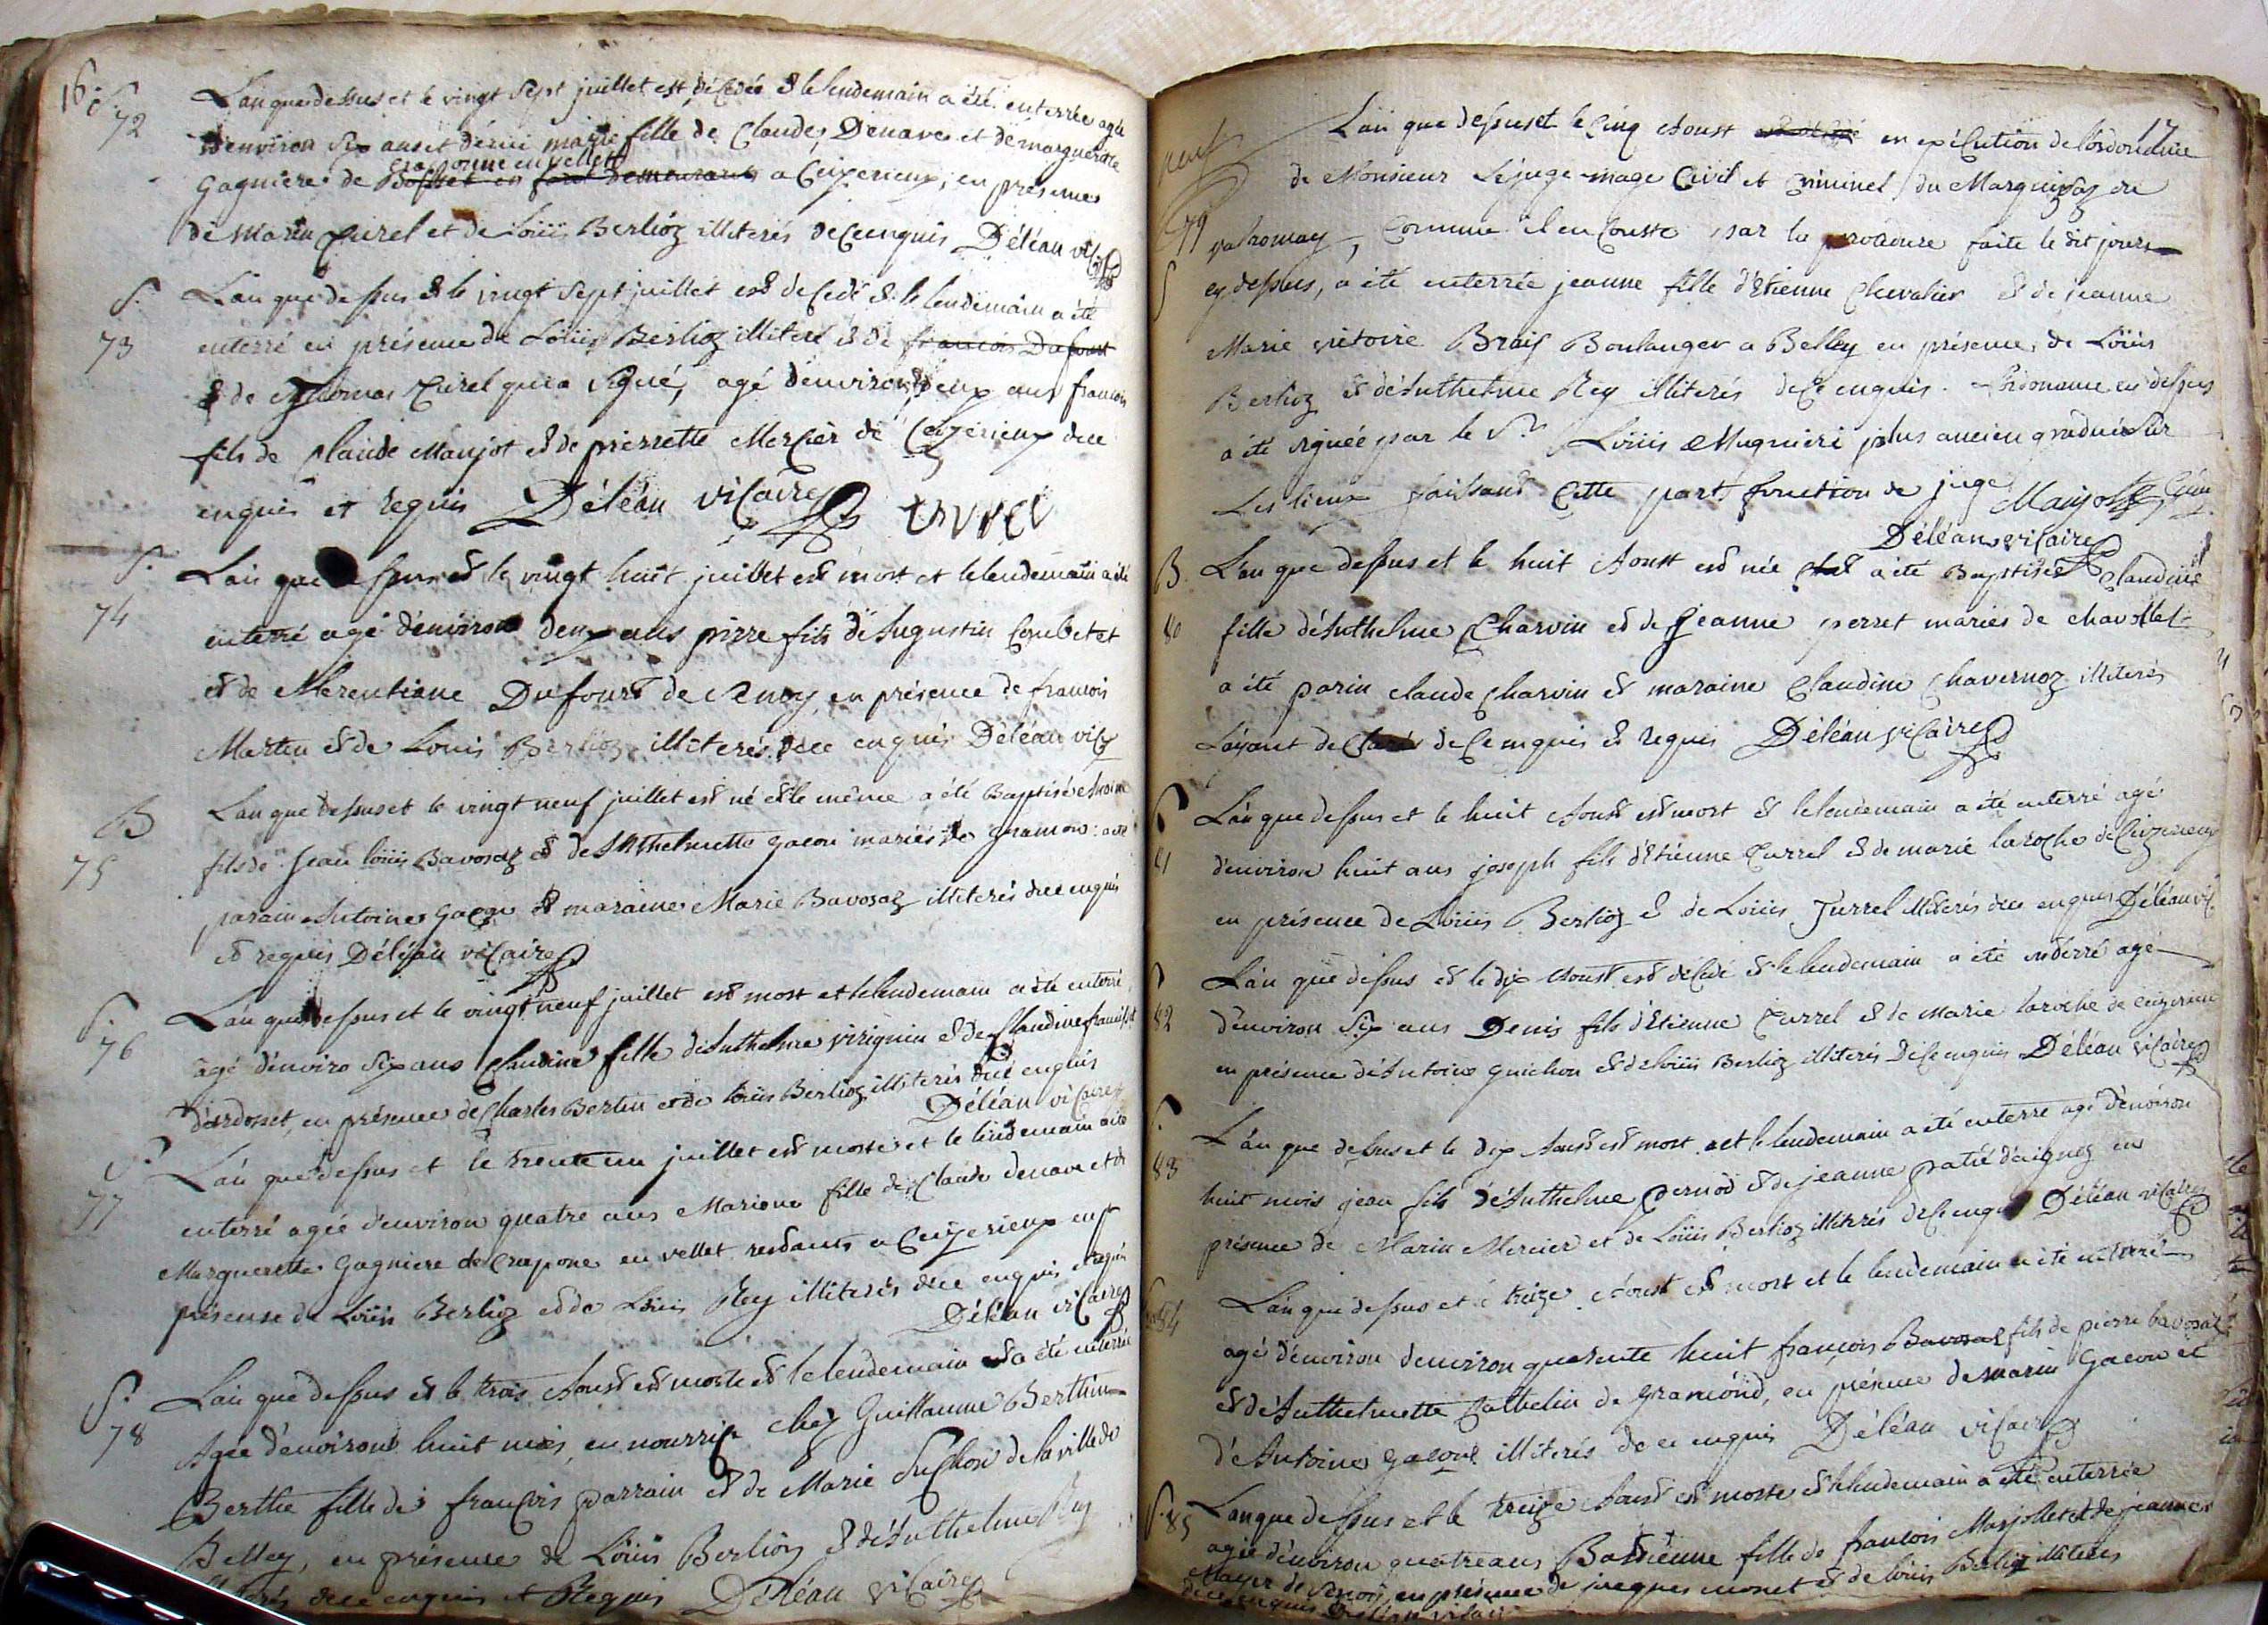 16.
S.
72
L'an que dessus et le vingt sept juillet est décédée & le lendemain a été enterrée agée
d'environ six ans et demi marie fille de Claude Denave et de marguerette
Craponne en vellet
Gagniere de a Ceizerieux, en présence
de Marin Curel et de Loüis Berlioz illiterés de ce enquis Déléan vic
S.
73
L'an que dessus & le vingt sept juillet est decedé & le lendemain a été
enterré en présence de Loüis Berlioz illiteré & de francois Dufour
& de Thomas Curel qui a signé, agé d'environ deux ans francois
fils de Claude Manjot et de pierrette Mercier de Ceizerieux de ce
enquis et requis Déléan vicaire curel
S.
74
L'an que dessus et le vingt huit juillet est mort et le lendemain a été
enterré agé d'environ deux ans pierre fils d'Augustin Coubetet
et de Merentiane Dufourt de en présence de francois
Martin et de Louis Berlioz illiterés de ce enquis Déléan vic
B
75
L'an que dessus et le vingt neuf juillet est né et le même a été Baptisé Antoine
fils de Jean loüis Bavosaz et de Anthelmette gacon mariés de gramon a été
parain Antoine gacon et maraine Marie Bavosaz illiterés de ce enquis
et requis Déléan vicaire
S.
76
L'an que dessus et le vingt neuf juillet est mort et le lendemain a été enterré
agé d'enviro six ans Claudine fille d'Anthelme virignin & de Claudine
d'ardosset, en présence de Charles Bertin et de loüis Berlioz illiterés de ce enquis
Déléan vicaire
S.
77
L'an que dessus et le trente un juillet est morte et le lendemain a été
enterré agée d'environ quatre ans Mariane fille de Claude denave et de
Marguerette Gagniere de Crapone en vellet residants a Ceizerieux en
présence de Loüis Berlioz et de Loüis Rey illiterés de ce enquis et requis
Déléan vicaire
S.
78
L'an que dessus et le trois Aoust est morte et le lendemain a été enterrée
Agée d'environ huit mois, en nourrice chez Guillaume Berthin
Berthe fille de francois parrain et de Marie Suchon de la ville de
Belley, en présence de Loüis Berlioz & d'Anthelme Rey
illiterés de ce enquis et Requis Déléan vicaire
17
79
S
L'an que dessus et le cinq Aoust en exécution de l'ordonance
de Monsieur Le juge-mage Civil et criminel du Marquizas de
valromay, Comme il en Conste par la procedure faite le dit jour
cy dessus, a été enterrée jeanne fille d'Etienne Chevalier & de jeanne
Marie victoire Brais Boulanger a Belley en présence de Loüis
Berlioz & d'Anthelme Rey illiterés de ce enquis. l'ordonance cy dessus
a été signée par le Sr. Loüis Mugnieri plus ancien gradué sur
Les lieux faisant Cette part fonction de juge Manjot Curé
Déléan vicaire
B.
80
L'an que dessus et le huit Aoust est née a été Baptisée Claudine
fille d'Anthelme Charvin et de Jeanne perret mariés de chavollet
a été parin claude Charvin et maraine Claudine Chavernoz illiterés
de ce enquis et requis Déléan vicaire
S
81
L'an que dessus et le huit Aoust est mort & le lendemain a été enterré agé
d'environ huit ans joseph fils d'Etienne Currel & de marie laroche de Ceizerieux
en présence de Loüis Berlioz & de Loüis Jurrel illiterés de ce enquis Déléan vic
S
82
L'an que dessus et le dix Aoust est décédé & le lendemain a été enterré agé
d'environ six ans Denis fils d'Etienne Currel & de Marie laroche de ceizerieux
en présence d'Antoine guichon et de loüis Berlioz illiterés de ce enquis Déléan vicaire
S.
83
L'an que dessus et le dix Aoust est mort et le lendemain a été enterré agé d'environ
huit mois jean fils d'Anthelme Pernod & de jeanne patié d'aignoz en
présence de Marin Mercier et de Loüis Berlioz illiterés de ce enquis Déléan vicaire
84
L'an que dessus et le treize Aoust est mort et le lendemain a été enterré
agé d'environ d'environ quarente huit françois Bavosat fils de pierre bavosat
et d'Anthelmette Cathelin de gramônd, en présence de marin Gacon et
d'Antoine gacont illiterés de ce enquis Déléan vicaire
S. 85
L'an que dessus et le treize Aoust est morte & le lendemain a été enterrée
agée d'environ quatre ans Bastienne fille de francois Marjollet et de jeanne
Mayer de en présence de jacques monet & de loüis Berlioz illiterés
de ce enquis Déléan vicaire